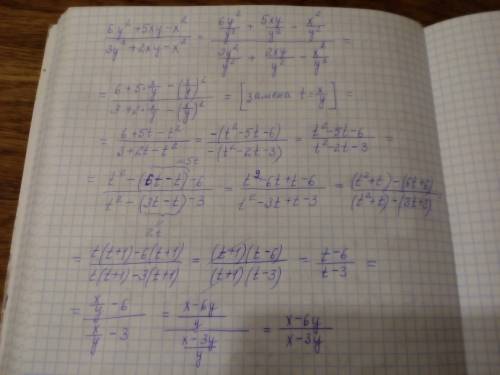 (6y²+5xy-x²)/(3y²+2xy-x²) = (6y²/y² + 5xy/y² - x²/y²)/(3y²/y² + 2xy/y² - x²/y²) =
= (6+5·x/y-(x/y)²)/(3+2·x/y-(x/y)²) = [замена t=x/y] =
= (6+5t-t²)/(3+2t-t²) = (-(t²-5t-6))/(-(t²-2t-3)) = (t²-5t-6)/(t²-2t-3) =
=5t
= (t²-(6t-t)-6)/(t²-(3t-t)-3) = (t²-6t+t-6)/(t²-3t+t-3) = ((t²+t)-(6t+6))/((t²+t)-(3t+3))
2t
= (t(t+1)-6(t+1))/(t(t+1)-3(t+1)) = ((t+1)(t-6))/((t+1)(t-3)) = (t-6)/(t-3) =
= (x/y-6)/(x/y-3) = ((x-6y)/y)/((x-3y)/y) = (x-6y)/(x-3y)